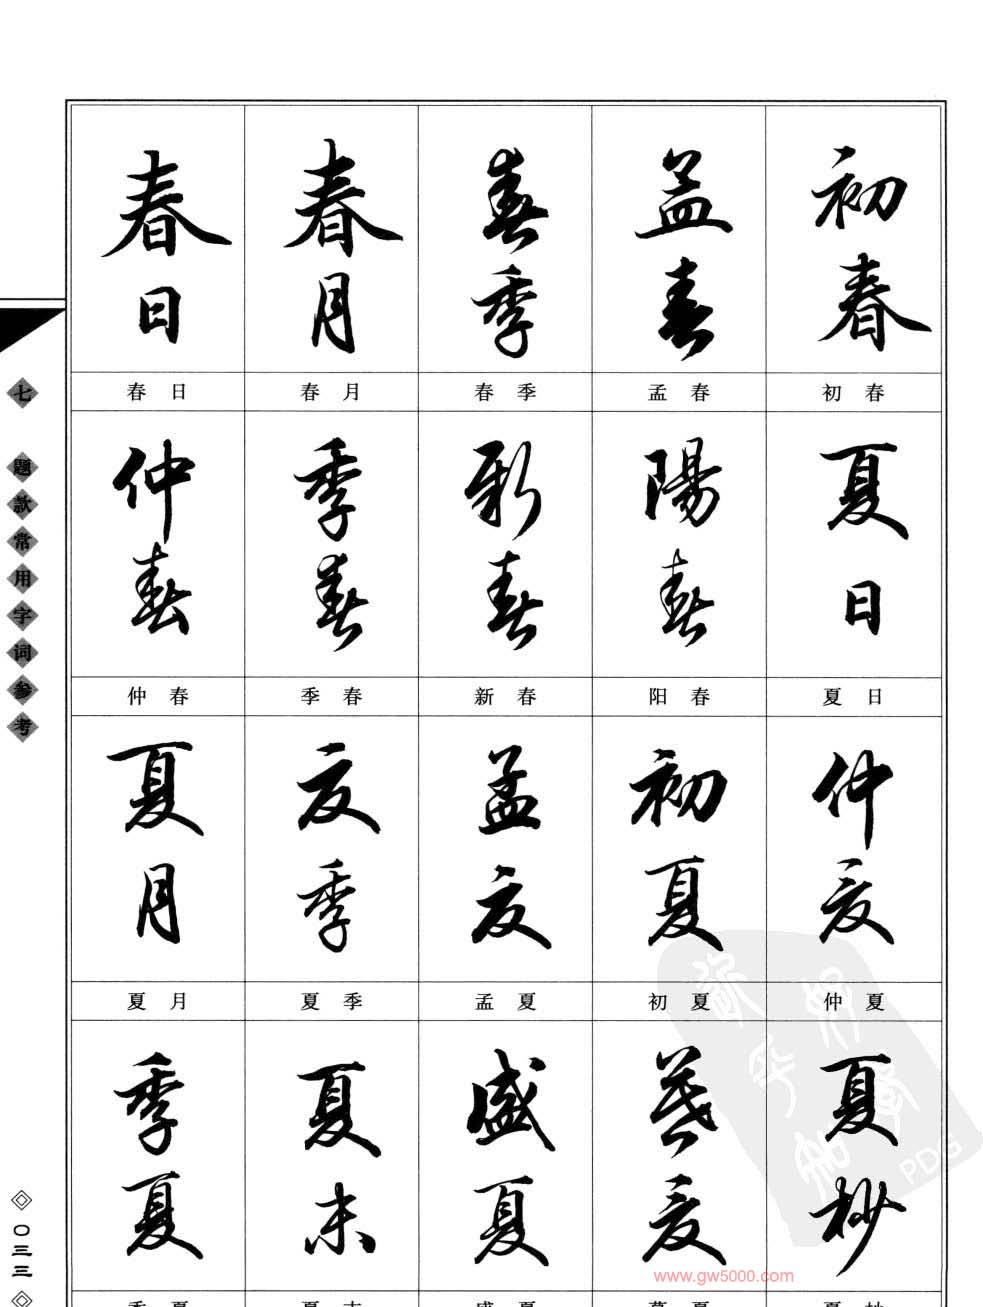 春日
春月
春季
孟春
初春
春日
春月
春季
孟春
初春
仲春
季春
新春
陽春
夏日
仲春
季春
新春
阳春
夏日
夏月
夏季
孟夏
初夏
仲夏
夏月
夏季
孟夏
初夏
仲夏
季夏
夏末
盛夏
暮夏
夏杪
季夏
夏末
盛夏
暮夏
夏杪
七 题款常用字词参考
〇三三
www.gw5000.com
PDG